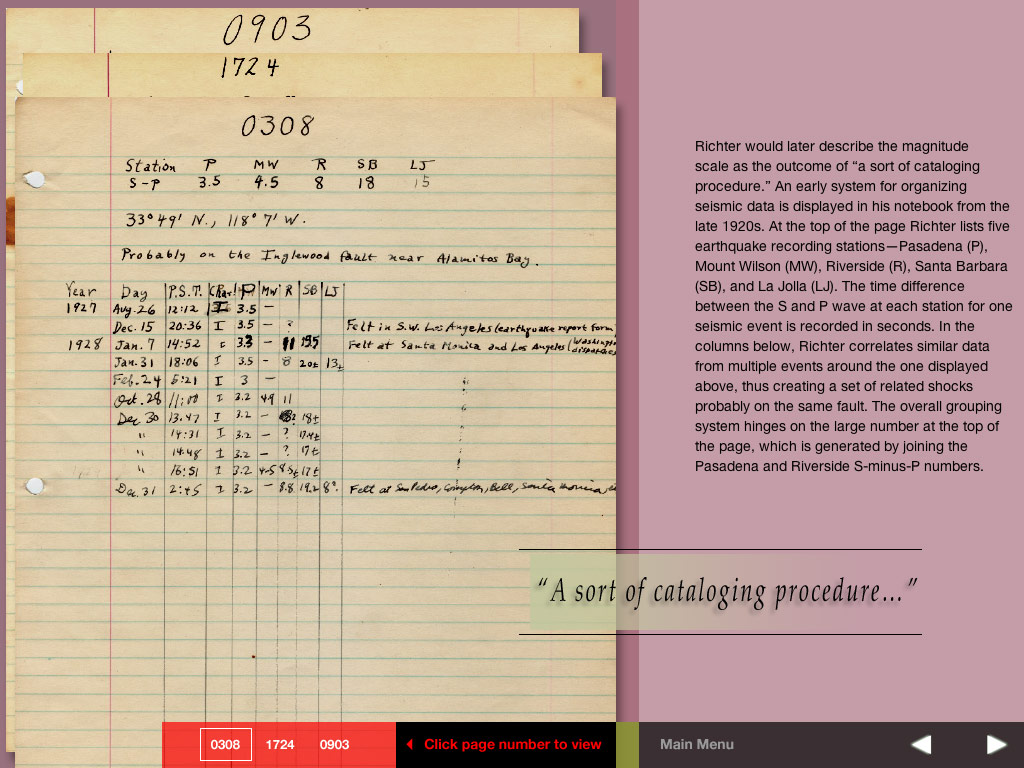 0903
1724
0308
Station P MW R SB LJ
S-P 3.5 4.5 8 18 15
33° 49' N., 118° 7' W.
Probably on the Inglewood fault near Alamitos Bay.
Year Day P.S.T. Char. P MW R SB LJ
1927 Aug. 26 12:12 I 3.5 —
Dec. 15 20:36 I 3.5 — ? Felt in S.W. Los Angeles (earthquake report form
1928 Jan. 7 14:52 3.3 — 11 Felt at Santa Monica and Los Angeles (Washington dispatches
Jan. 31 18:06 I 3.5 — 8 20± 13±
Feb. 24 5:21 I 3 —
Oct. 28 11:00 I 3.2 11
Dec 30 13:47 I 3.2 — 18±
" 14:31 I 3.2 — ? 17.4±
" 14:48 I 3.2 — ? 17±
" 16:51 I 3.2 4.5 8.5± 17±
Dec. 31 2:45 I 3.2 — 8.8 19.2 Felt at San Pedro, Compton, Bell, Santa Monica,
Richter would later describe the magnitude
scale as the outcome of “a sort of cataloging
procedure.” An early system for organizing
seismic data is displayed in his notebook from the
late 1920s. At the top of the page Richter lists five
earthquake recording stations—Pasadena (P),
Mount Wilson (MW), Riverside (R), Santa Barbara
(SB), and La Jolla (LJ). The time difference
between the S and P wave at each station for one
seismic event is recorded in seconds. In the
columns below, Richter correlates similar data
from multiple events around the one displayed
above, thus creating a set of related shocks
probably on the same fault. The overall grouping
system hinges on the large number at the top of
the page, which is generated by joining the
Pasadena and Riverside S-minus-P numbers.
“A sort of cataloging procedure...”
0308 1724 0903 Click page number to view Main Menu